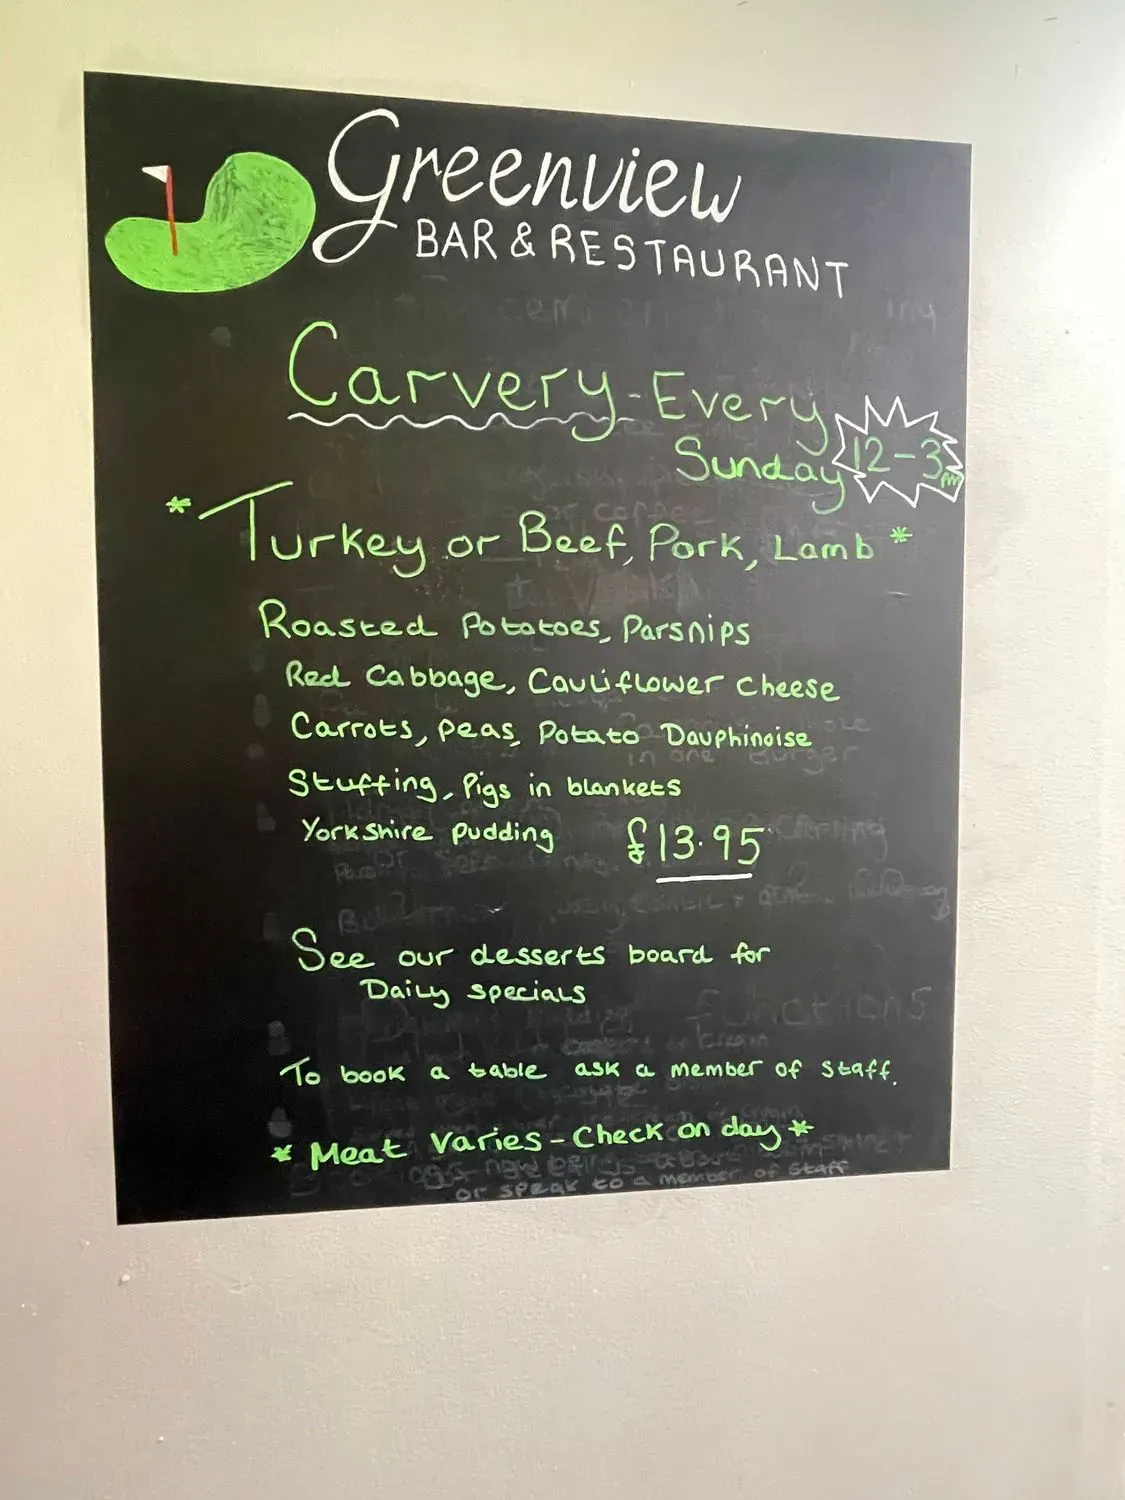 Greenview
BAR & RESTAURANT
Carvery - Every
Sunday 12-3pm
* Turkey or Beef, Pork, Lamb *
Roasted Potatoes, Parsnips
Red Cabbage, Cauliflower Cheese
Carrots, Peas, Potato Dauphinoise
Stuffing, Pigs in blankets
Yorkshire Pudding £13.95
See our desserts board for
Daily specials
To book a table ask a member of staff.
* Meat Varies - Check on day *
or speak to a member of staff